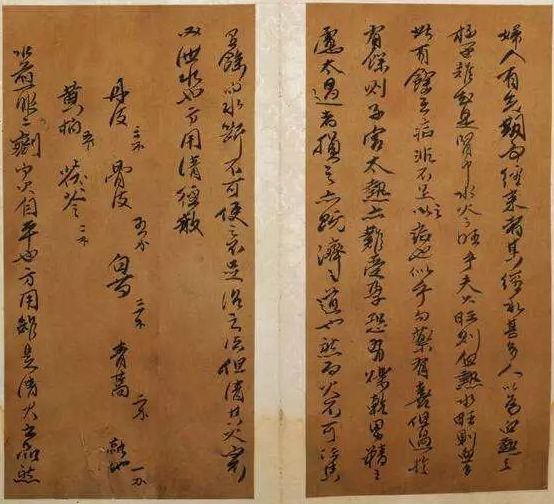 婦人有先期而經來者其經水甚多人以為血熱之
極 是腎中水火之旺乎夫火旺則血熱水旺則
此有餘之病非不足之症也似乎勿藥有喜但過於
有餘則子宮太熱亦難受孕恐有爍乾男精之
慮太過者損之亦既濟之道也然而火不可任其
有餘而水斷不可使 是治之法但清其火
水也方用清經散
丹皮三錢 骨皮五分 白芍三錢 青蒿二錢 熟地
黃柏五分 茯苓二錢
水煎服二劑而火自平也方用雖是清火之品然